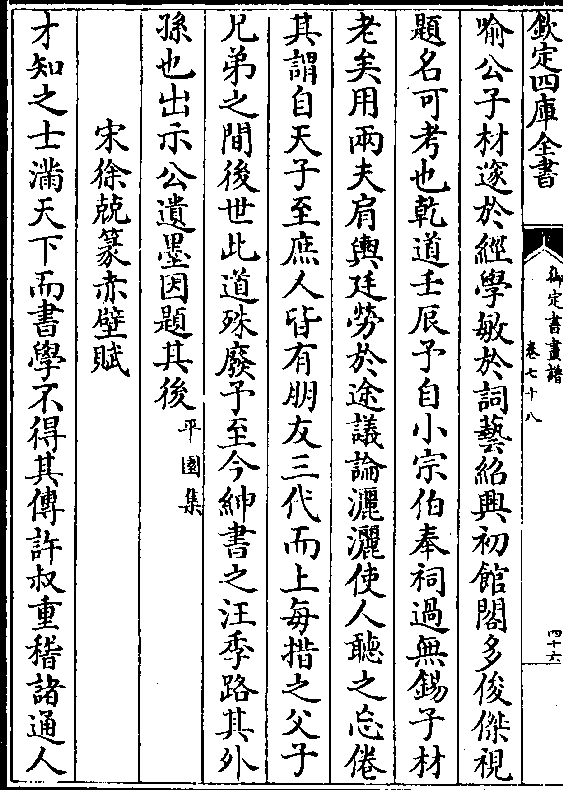 欽定四庫全書
御定書畫譜
卷七十八
四十六
喻公子材邃於經學敏於詞藝紹興初館閣多俊傑視
題名可考也乾道壬辰予自小宗伯奉祠過無錫子材
老矣用兩夫肩輿迋勞於途議論灑灑使人聽之忘倦
其謂自天子至庶人皆有朋友三代而上每措之父子
兄弟之間後世此道殊廢予至今紳書之汪季路其外
孫也出示公遺墨因題其後平園集
宋徐兢篆赤壁賦
才知之士滿天下而書學不得其傳許叔重稽諸通人